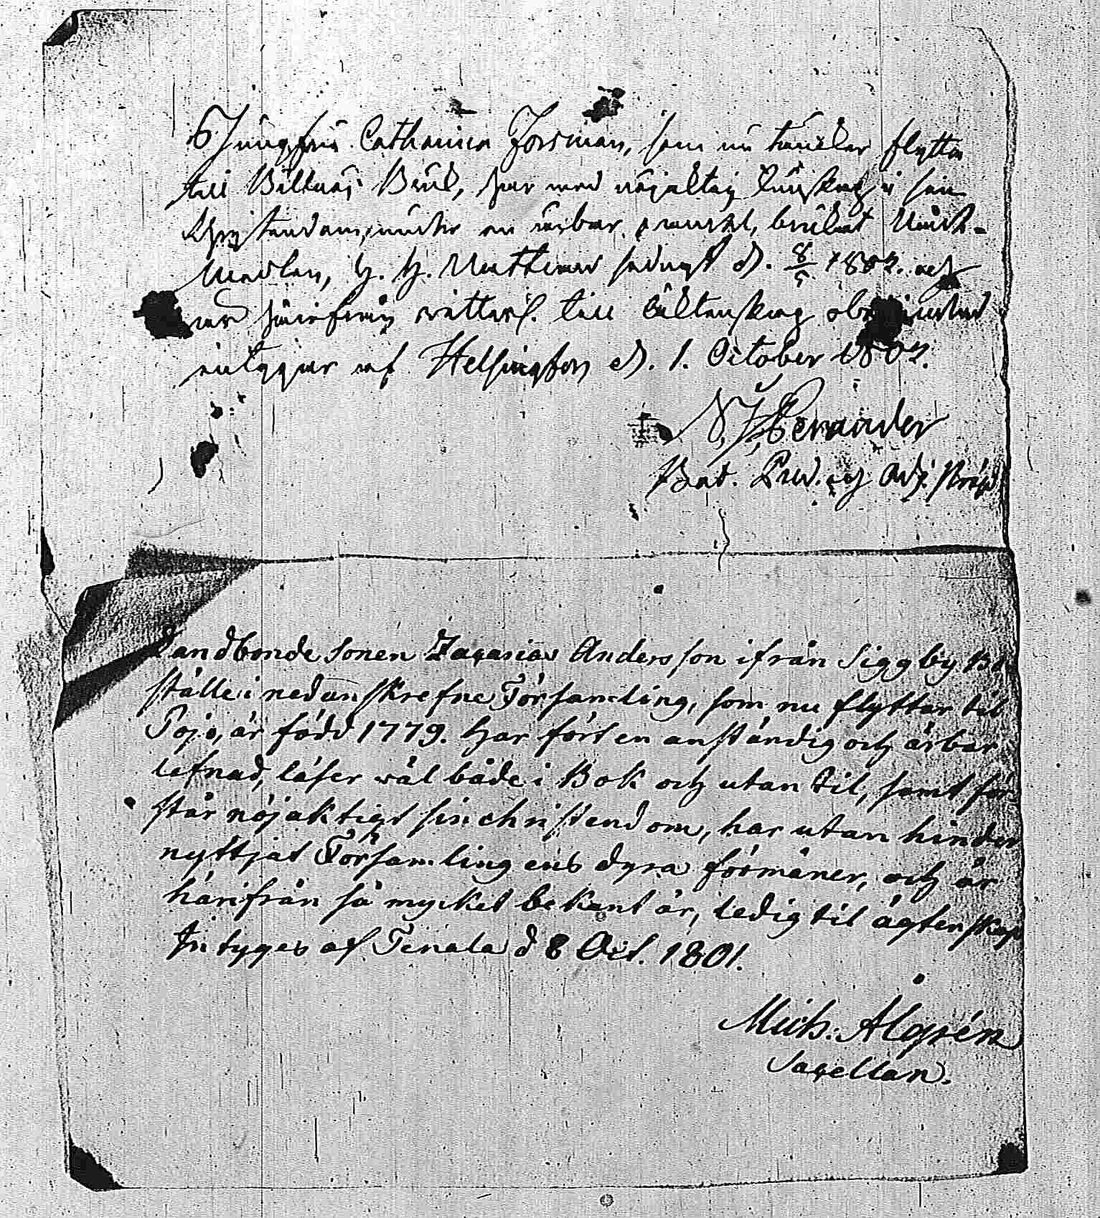 Jungfrun Catharina Forsman, som nu tänker flytta
till Billnäs Bruk, har med nöjaktig kunskap i sin
Christendom, under en ärbar frejd, brukat Nåde-
medlen, H. H. Nattvard sednast d. 8/5 1802. och
är härifrån till äktenskap obehindrad
intygar af Helsingfors d. 1. October 1802.
Bat. Pred. och Adj.
Landbonde sonen Zacarias Andersson ifrån Siggby Bo-
ställe i nedanskrefne Församling, som nu flyttar til
Pojo, är född 1779. Har fört en anständig och ärbar
lefnad, läser väl både i Bok och utan til, samt för
står nöjaktigt sin christendom, har utan hinder
nyttjat Församlingens dyra förmåner, och är
härifrån så mycket bekant är, ledig til ägtenskap
Intyges af Tenala d 8 Oct. 1801.
Mich: Algrén
Sacellan.